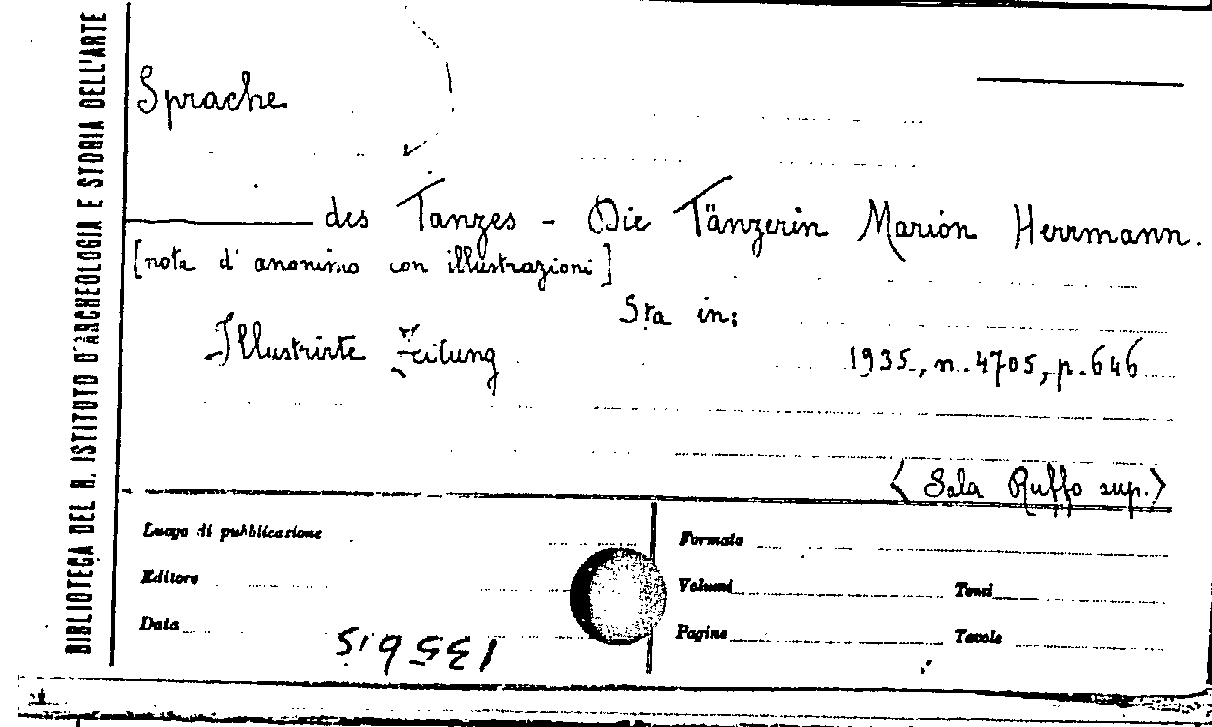 BIBLIOTECA DEL R. ISTITUTO D'ARCHEOLOGIA E STORIA DELL'ARTE
Sprache
des Tanzes - Die Tänzerin Marion Herrmann.
[nota d'anonimo con illustrazioni]
Sta in:
Illustrirte Zeitung
1935, n. 4705, p. 646
< Sala Ruffo sup. >
Luogo di pubblicazione
Formato
Editore
Volumi
Tomi
Data
Pagine
Tavole